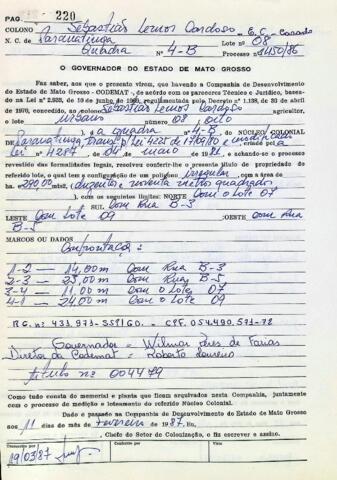 PAG. 220
COLONO Sebastião Lemos Cardoso E.C. Casado
N. C. de Paranatinga Lote nº 08
Quadra Nº 4-B Processo nº 1450/86
O GOVERNADOR DO ESTADO DE MATO GROSSO
Faz saber, aos que a presente virem, que havendo a Companhia de Desenvolvimento
do Estado de Mato Grosso - CODEMAT -, de acôrdo com os pareceres Técnico e Jurídico, basean-
do na Lei nº 2.938, de 10 de junho de 1969, regulamentada pelo Decreto nº 1.138, de 30 de abril
de 1970, concedido, ao colono Sebastião Lemos Cardoso
agricultor,
o urbano número 08 oito
a quadra nº 4-B, do NÚCLEO COLONIAL
de Paranatinga Lei 4225 de 17/09/80 e criado pela
Lei nº 4287 de 04 de maio de 1981, e achando-se o processo
revestido das formalidades legais, resolveu conferir-lhe o presente título de propriedade do
referido lote, o qual tem a configuração de um polígono irregular com a área de
ha 290,00 m2, duzentos e noventa metros quadrados,
com os seguintes limites: NORTE Com o Lote 07
SUL Com Rua B-3
LESTE Com Lote 09 OESTE Com Rua
B-5
MARCOS OU DADOS
Confrontações:
1-2 — 14,00m Com Rua B-3
2-3 — 23,00m Com Rua B-5
3-4 — 11,00m Com o Lote 07
4-1 — 24,00m Com o Lote 09
R.G. nº 431.971-SSP/GO. - CPF. 054.490.571-72
Governador = Wilmar Peres de Farias
Diretor da Codemat = Roberto Loureiro
título nº 004479
Como tudo consta do memorial e planta que ficam arquivados nesta Companhia, juntamente
com o processo de medição e loteamento do referido Núcleo Colonial.
Dado e passado na Companhia de Desenvolvimento do Estado de Mato Grosso
aos 11 dias do mês de Fevereiro de 1987. Eu,
Chefe do Setor de Colonização, o fiz escrever e assino.
Conferido por
Visto
19/03/87